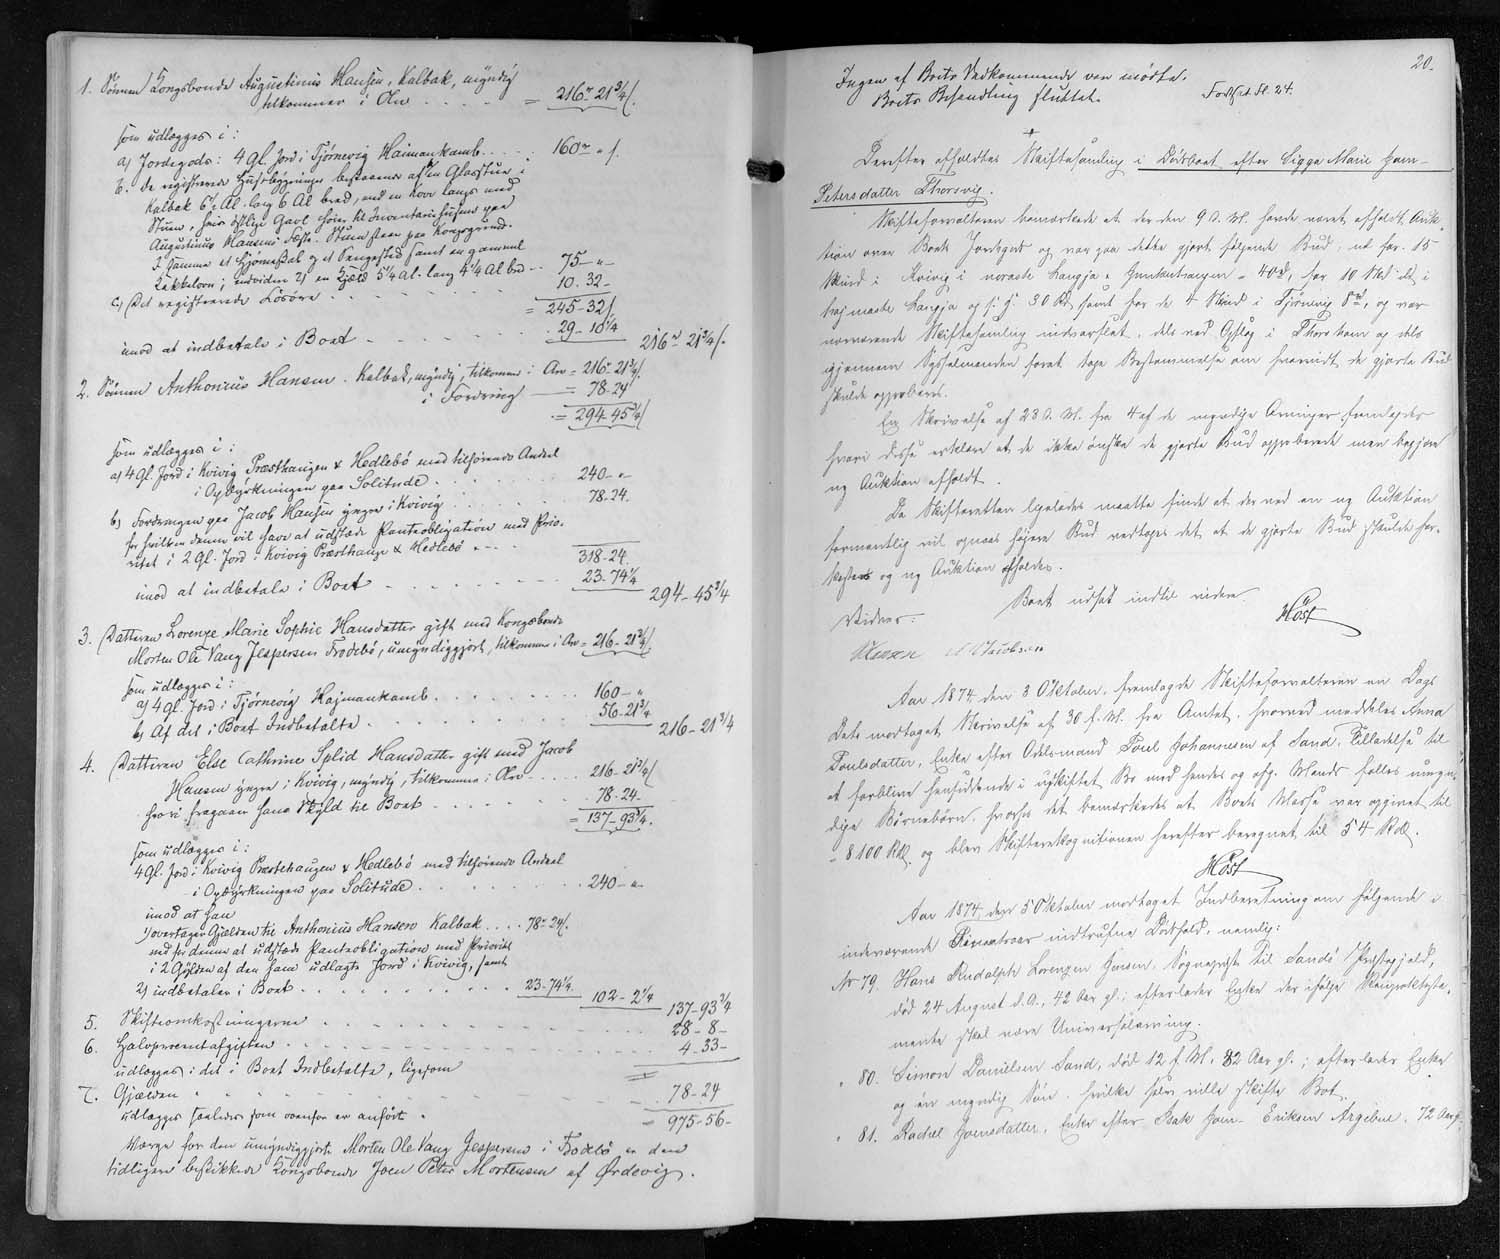 1. Sønnen Kongsbonde Augustinus Hansen, Kalbak, myndig
tilkommer i Arv = 216 rd 21 3/4 s.
som udlægges i:
a) Jordegods: 4 gl. Jord i Tjørnevig Haimankamb 160 rd " s.
b. de registrerede Husebygninger bestaaende af en Glasstue i
Kalbak 6 1/2 Al. lang 6 Al bred, med en Kove langs med
Stuen, hvis østlige Gavl hører til Inventariehusene paa
Augustinus Hansens Fæste. Stuen staar paa Kongsgrund.
I samme et Hjørneskab og et Sengested samt en gammel
Kakkelovn; endvidere 2) en Hjeld 5 1/4 Al. lang 4 1/4 Al bred 75 - "
c) Det registrerede Løsøre 10. 32 -
= 245 - 32
imod at indbetale i Boet 29 - 10 1/4 216 rd 21 3/4 s.
2. Sønnen Anthonius Hansen. Kalbak, myndig, tilkommer i Arv = 216 - 21 3/4
i Fordring = 78 - 24
= 294 - 45 3/4
som udlægges i:
a) 4 gl. Jord i Kvivig Præsthaugen & Hedlebø med tilhørende Andeel
i Opdyrkningen paa Solitude 240 - "
b) Fordringen paa Jacob Hansen yngre i Kvivig 78 - 24.
for hvilken denne vil have at udstæde Panteobligation med Prio-
ritet i 2 gl. Jord i Kvivig Præsthauge & Hedlebø
318 - 24.
imod at indbetale i Boet 23 - 74 1/4 294 - 45 3/4
3. Datteren Lorenze Marie Sophie Hansdatter gift med Kongsbonde
Morten Ole Vang Jespersen Frodebø, umyndiggjort, tilkommer i Arv = 216 - 21 3/4
som udlægges i:
a) 4 gl. Jord i Tjørnevig Hajmankamb 160 - "
b) Af det i Boet Indbetalte 56 - 21 3/4 216 - 21 3/4
4. Datteren Else Cathrine Splid Hansdatter gift med Jacob
Hansen yngre i Kvivig, myndig, tilkommer i Arv 216 - 21 3/4
hvori fragaaer hans Skyld til Boet 78 - 24 -
= 137 - 93 3/4.
som udlægges i:
4 gl. Jord i Kvivig Præstehaugen & Hedlebø med tilhørende Andeel
i Opdyrkningen paa Solitude 240 - "
imod at han
1) overtager Gjælden til Anthonius Hansen Kalbak 78 rd 24 s.
ved for denne at udstæde Panteobligation med Prioritet
i 2 Gylden af den ham udlagte Jord i Kvivig, samt
2) indbetaler i Boet 23 - 74 1/4 102 - 2 1/4 137 - 93 3/4
5. Skifteomkostningerne 28 - 8 -
6. Halvprocentafgiften 4 - 33 -
udlægges i det i Boet Indbetalte, ligesom
7. Gjælden 78 - 24
udlægges saaledes som ovenfor er anført. = 975 - 56 -
Værge for den umyndiggjorte Morten Ole Vang Jespersen i Frodebø er den
tidligere beskikkede Kongsbonde Joen Peter Mortensen af Ørdevig.
20.
Ingen af Boets Vedkommende var mødte.
Boets Behandling sluttet. Fortsat Fl. 24.
Derefter afholdtes Skiftesamling i Dødsboet efter Sigga Marie Joen-
Petersdatter Thorsvig.
Skifteforvalteren bemærkede at der den 9 d. M. havde været afholdt Auk-
tion over Boets Jordegods og var paa dette gjort følgende Bud: nl. for 15
Skind i Kvivig i noraste Langja & 40 rd, for 10 Sk do i
hajmaste Langja og 30 Rd samt for de 4 Skind i Tjørnevig 8 rd, og var
nærværende Skiftesamling indvarslet, dels ved Opslag i Thorshavn og dels
gjennem Sysselmanden forat tage Bestemmelse om hvorvidt de gjorte Bud
skulde approberes.
En Skrivelse af 23 d. M. fra 4 af de myndige Arvinger fremlagdes
hvori disse erklære at de ikke ønske de gjorte Bud approberede men begjære
ny Auktion afholdt.
Da Skifteretten ligeledes maatte finde at der ved en ny Auktion
formentlig vil opnaaes højere Bud vedtoges det at de gjorte Bud skulde for-
kastes og ny Auktion afholdes.
Boet udsat indtil videre.
Vidner. Høst
Aar 1874, den 3 Oktober, fremlagde Skifteforvalteren en Dags
Dato modtaget Skrivelse af 30 f. M. fra Amtet, hvorved meddeles Anna
Poulsdatter, Enke efter Odelsmand Poul Johannesen af Sand, Tilladelse til
at forblive hensiddende i uskiftet Bo med hendes og afg. Mands fælles umyn-
dige Børnebørn, hvorhos det bemærkedes at Boets Masse var opgivet til
8100 Rd og blev Skifterekognitionen herefter beregnet til 54 Rd.
Høst
Aar 1874, den 5 Oktober modtaget Indberetning om følgende i
indeværende indtrufne Dødsfald, nemlig:
Nr 79. Hans Rudolph Lorenzen Jensen, Sognepræst til Sandø Præstegjeld,
død 24 August d. A., 42 Aar gl.; efterlader Enke der ifølge
mente skal være Universalarving.
" 80. Simon Danielsen Sand, død 12 f. M. 82 Aar gl.; efterlader Enke
og en myndig Søn, hvilke selv ville skifte Boet.
" 81. Rachel Joensdatter, Enke efter Joen Eriksen 72 Aar gl.